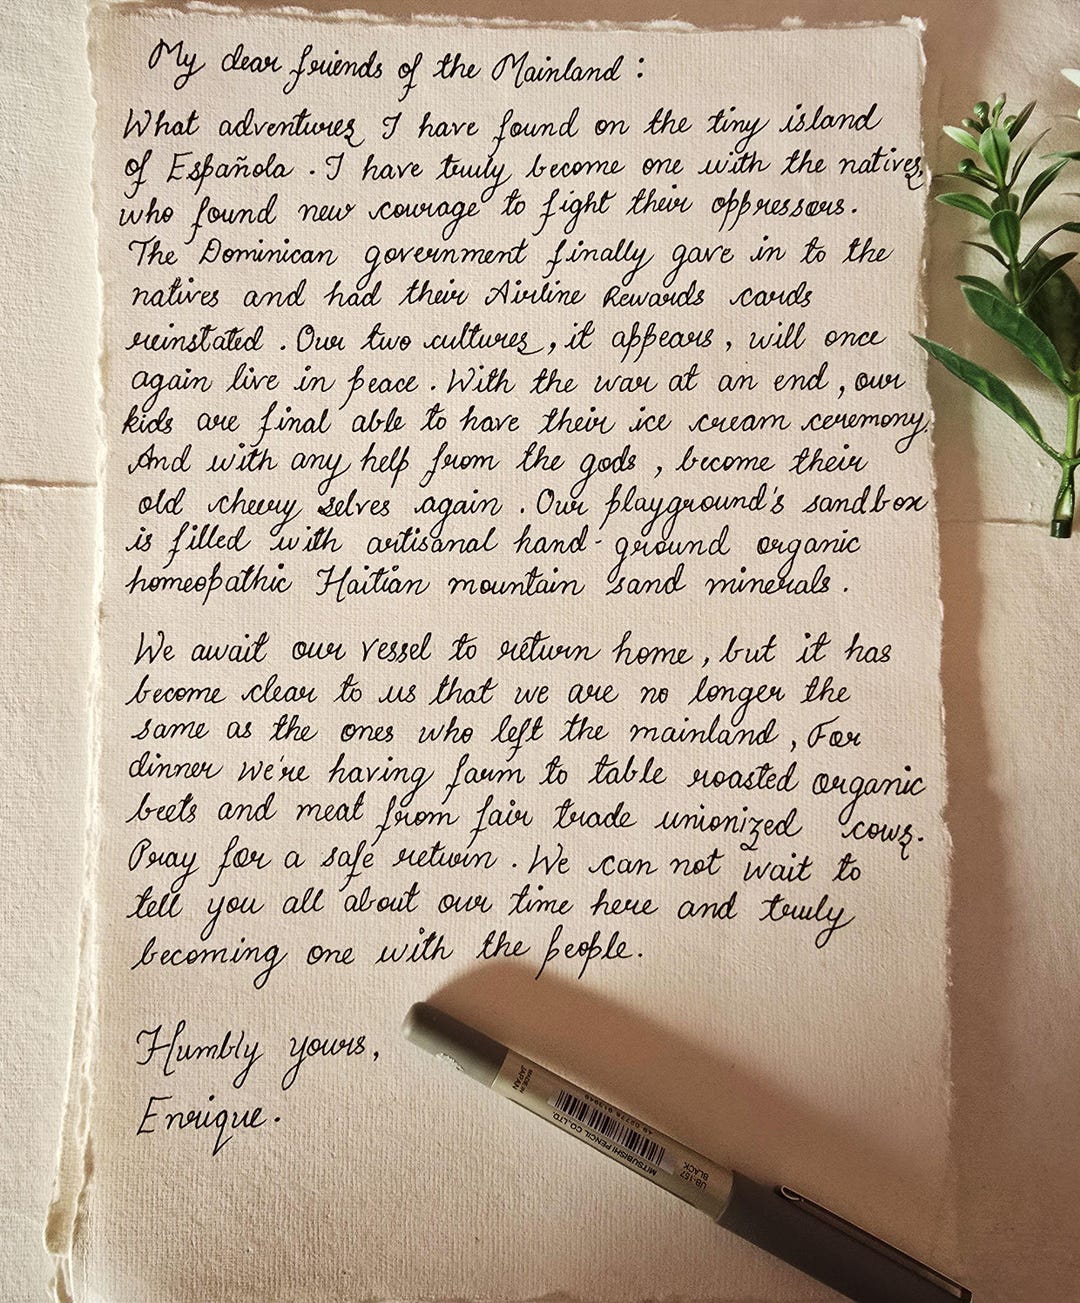 My dear friends of the Mainland :
What adventures I have found on the tiny island
of Española . I have truly become one with the natives,
who found new courage to fight their oppressors.
The Dominican government finally gave in to the
natives and had their Airline Rewards cards
reinstated . Our two cultures, it appears, will once
again live in peace . With the war at an end, our
kids are final able to have their ice cream ceremony.
And with any help from the gods, become their
old cheery selves again . Our playground's sandbox
is filled with artisanal hand-ground organic
homeopathic Haitian mountain sand minerals .
We await our vessel to return home, but it has
become clear to us that we are no longer the
same as the ones who left the mainland, For
dinner we're having farm to table roasted organic
beets and meat from fair trade unionized cows.
Pray for a safe return . We can not wait to
tell you all about our time here and truly
becoming one with the people.
Humbly yours,
Enrique.
MADE IN
JAPAN
MITSUBISHI PENCIL CO.,LTD.
UB-157
BLACK